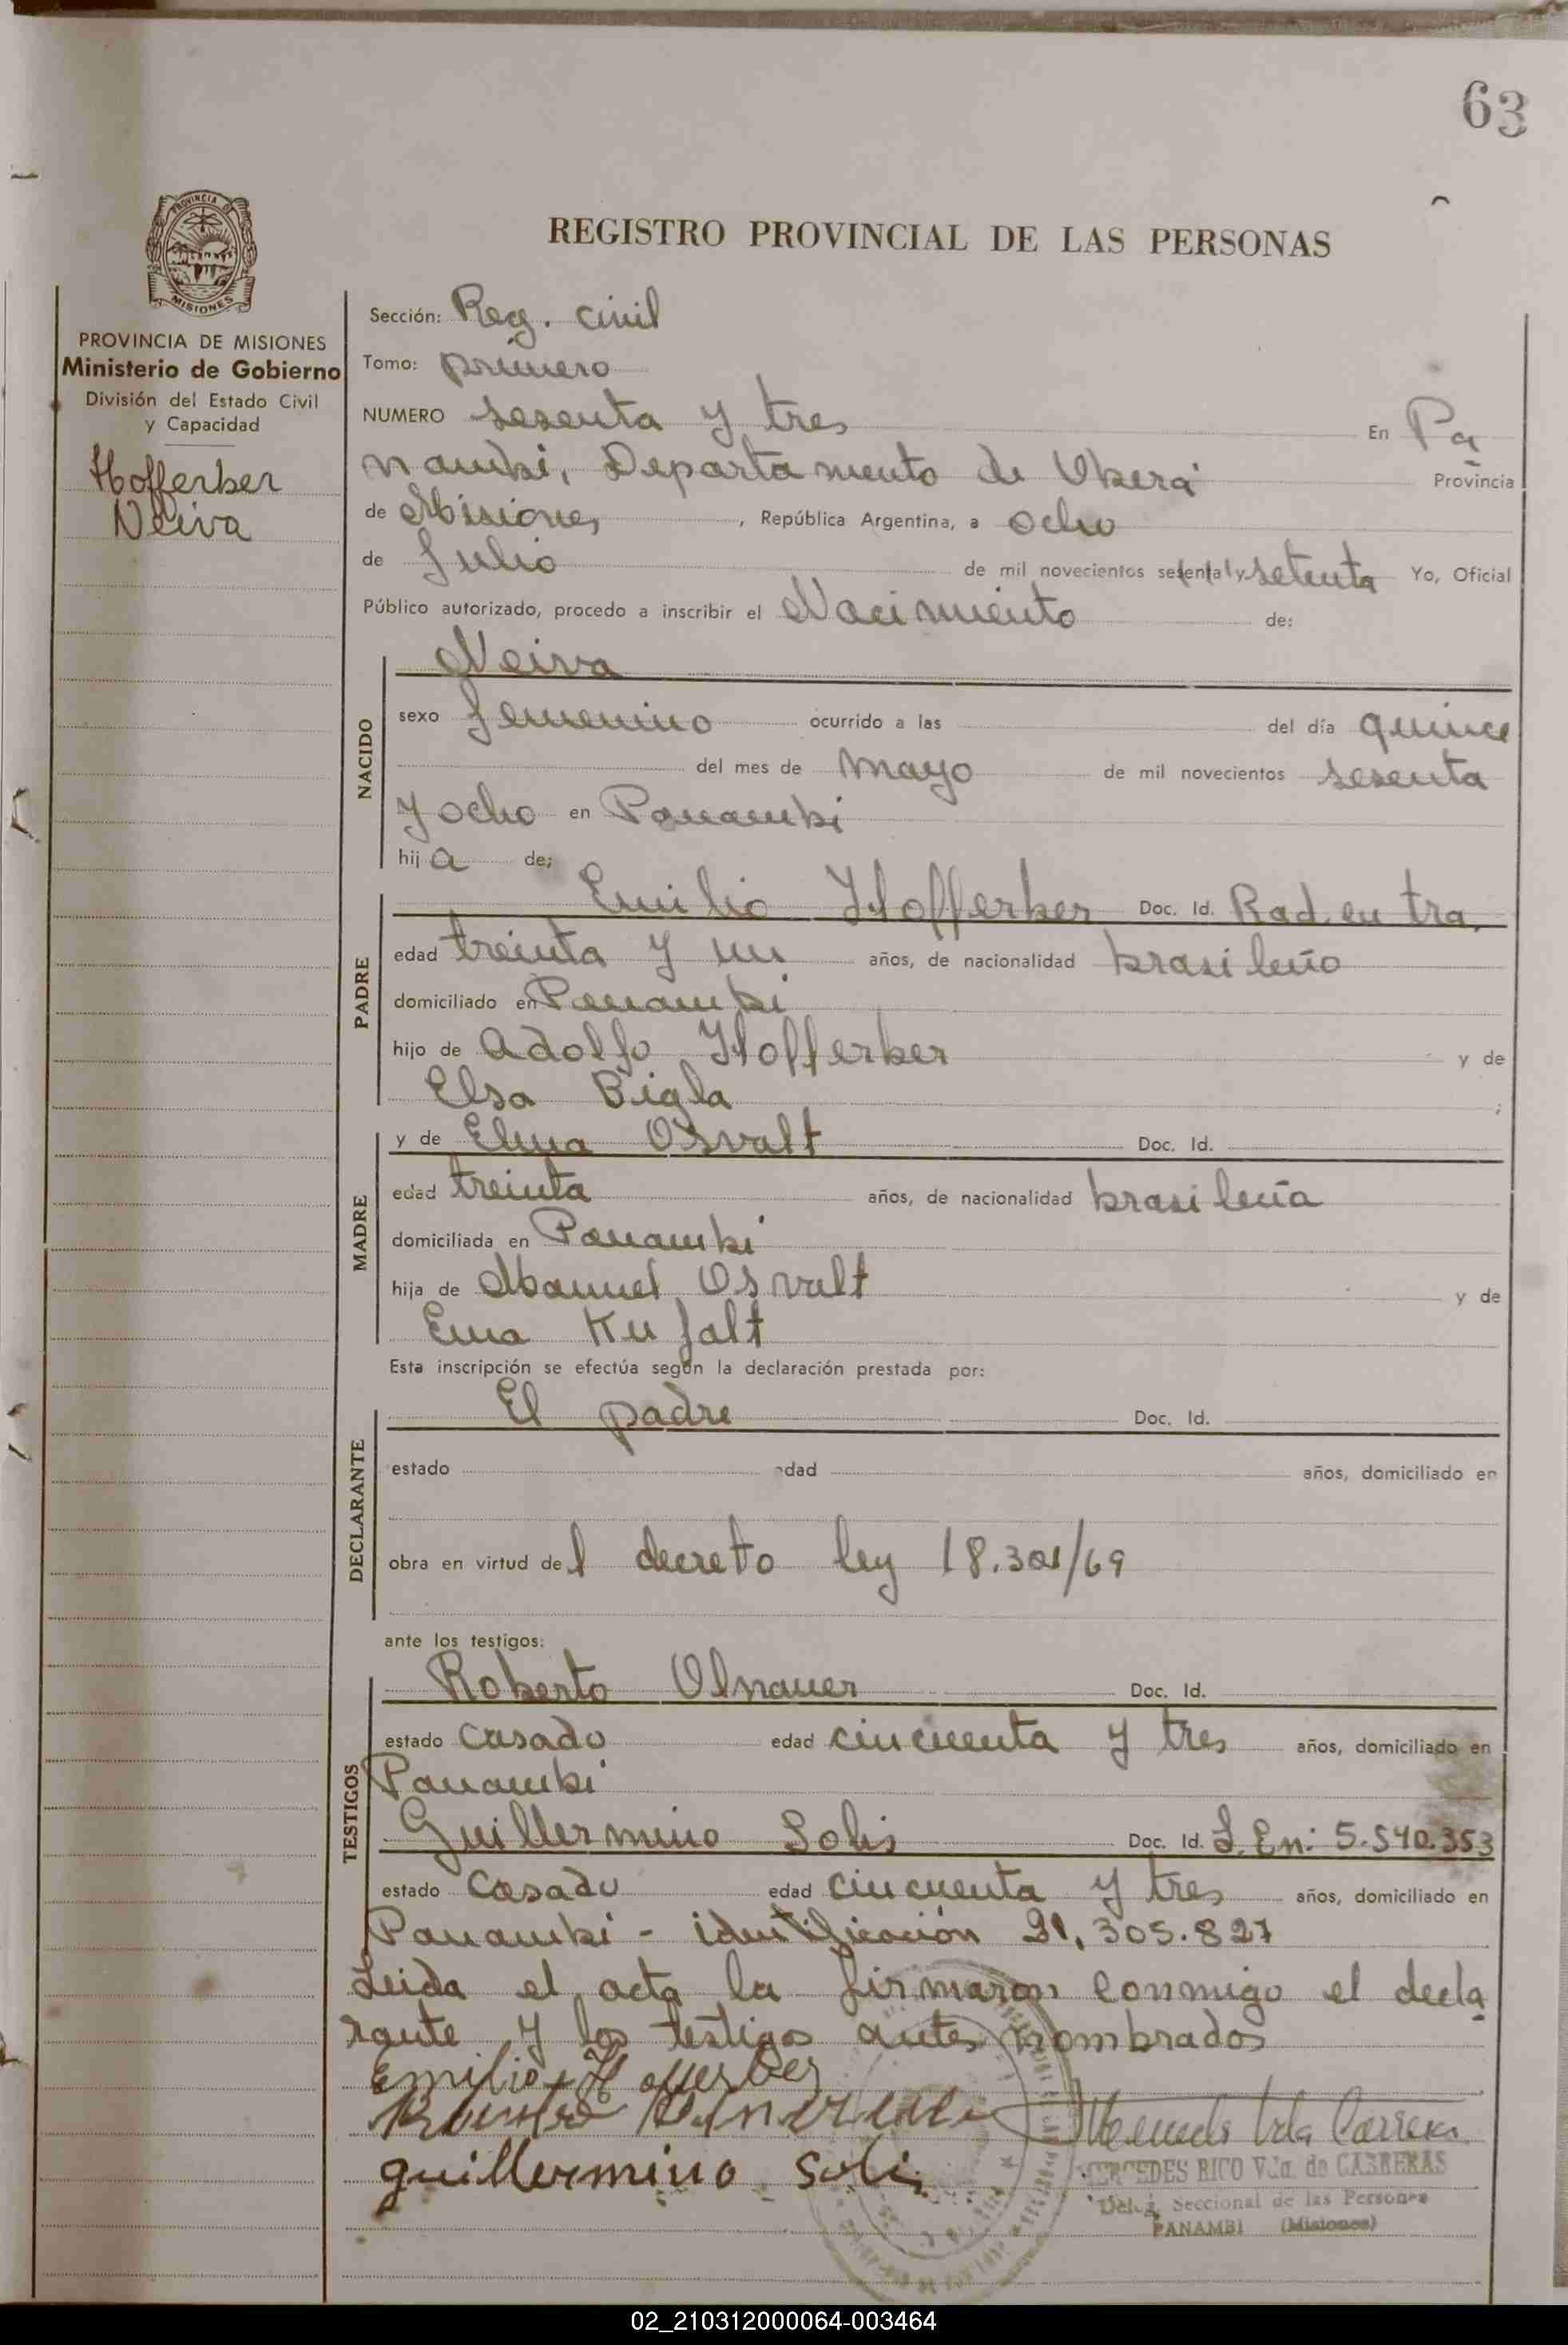 63
PROVINCIA DE
MISIONES
REGISTRO PROVINCIAL DE LAS PERSONAS
PROVINCIA DE MISIONES
Ministerio de Gobierno
División del Estado Civil
y Capacidad
Hofferber
Neiva
Sección: Reg. civil
Tomo: primero
NUMERO sesenta y tres En Pa
nambi, Departamento de Oberá Provincia
de Misiones, República Argentina, a ocho
de Julio de mil novecientos sesenta y setenta Yo, Oficial
Público autorizado, procedo a inscribir el Nacimiento de:
NACIDO
Neiva
sexo femenino ocurrido a las del día quince
del mes de mayo de mil novecientos sesenta
y ocho en Panambi
hija de;
PADRE
Emilio Hofferber Doc. Id. Rad. en tra.
edad treinta y un años, de nacionalidad brasileño
domiciliado en Panambi
hijo de Adolfo Hofferber y de
Elsa Bigla ;
MADRE
y de Elma Osvalt Doc. Id.
edad treinta años, de nacionalidad brasileña
domiciliada en Panambi
hija de Manuel Osvalt y de
Ema Kufalt
Esta inscripción se efectúa según la declaración prestada por:
DECLARANTE
El padre Doc. Id.
estado edad años, domiciliado en
obra en virtud del decreto ley 18.301/69
ante los testigos:
TESTIGOS
Roberto Olnauer Doc. Id.
estado casado edad cincuenta y tres años, domiciliado en
Panambi
Guillermino Solis Doc. Id. L. En: 5.540.353
estado casado edad cincuenta y tres años, domiciliado en
Panambi - identificación 21.305.827
Leida el acta la firmaron conmigo el decla
rante y los testigos antes nombrados
Emilio Hofferber
guillermino Solis
MERCEDES RICO Vda. de CABRERAS
Deleg. Seccional de las Personas
PANAMBI (Misiones)
02_210312000064-003464